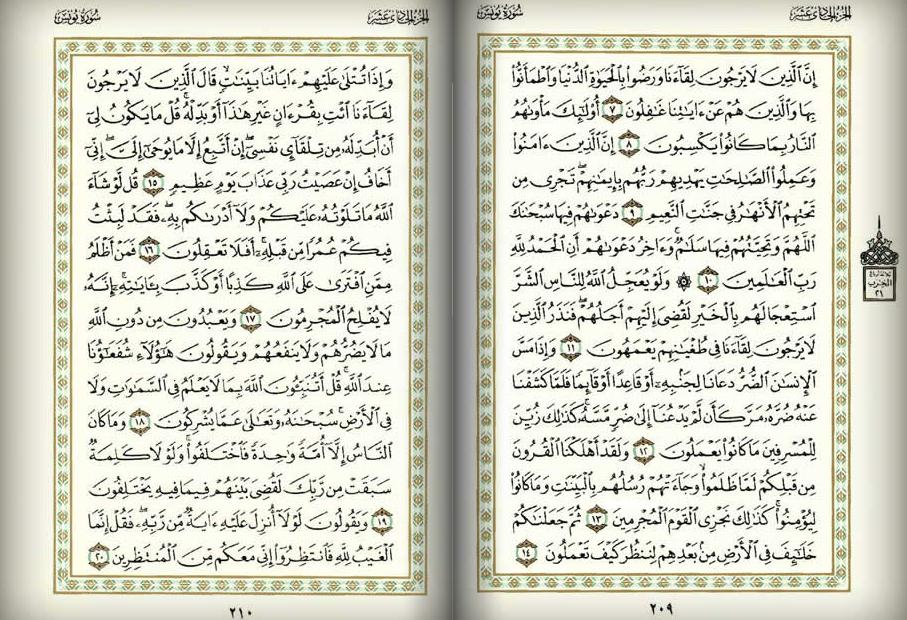 الجزء الحادي عشر
سورة يونس
إِنَّ ٱلَّذِينَ لَا يَرْجُونَ لِقَآءَنَا وَرَضُوا۟ بِٱلْحَيَوٰةِ ٱلدُّنْيَا وَٱطْمَأَنُّوا۟
بِهَا وَٱلَّذِينَ هُمْ عَنْ ءَايَٰتِنَا غَٰفِلُونَ ٧ أُو۟لَٰٓئِكَ مَأْوَىٰهُمُ
ٱلنَّارُ بِمَا كَانُوا۟ يَكْسِبُونَ ٨ إِنَّ ٱلَّذِينَ ءَامَنُوا۟
وَعَمِلُوا۟ ٱلصَّٰلِحَٰتِ يَهْدِيهِمْ رَبُّهُم بِإِيمَٰنِهِمْ ۖ تَجْرِى مِن
تَحْتِهِمُ ٱلْأَنْهَٰرُ فِى جَنَّٰتِ ٱلنَّعِيمِ ٩ دَعْوَىٰهُمْ فِيهَا سُبْحَٰنَكَ
ٱللَّهُمَّ وَتَحِيَّتُهُمْ فِيهَا سَلَٰمٌ ۚ وَءَاخِرُ دَعْوَىٰهُمْ أَنِ ٱلْحَمْدُ لِلَّهِ
رَبِّ ٱلْعَٰلَمِينَ ١٠ ۞ وَلَوْ يُعَجِّلُ ٱللَّهُ لِلنَّاسِ ٱلشَّرَّ
ٱسْتِعْجَالَهُم بِٱلْخَيْرِ لَقُضِىَ إِلَيْهِمْ أَجَلُهُمْ ۖ فَنَذَرُ ٱلَّذِينَ
لَا يَرْجُونَ لِقَآءَنَا فِى طُغْيَٰنِهِمْ يَعْمَهُونَ ١١ وَإِذَا مَسَّ
ٱلْإِنسَٰنَ ٱلضُّرُّ دَعَانَا لِجَنۢبِهِۦٓ أَوْ قَاعِدًا أَوْ قَآئِمًا فَلَمَّا كَشَفْنَا
عَنْهُ ضُرَّهُۥ مَرَّ كَأَن لَّمْ يَدْعُنَآ إِلَىٰ ضُرٍّ مَّسَّهُۥ ۚ كَذَٰلِكَ زُيِّنَ
لِلْمُسْرِفِينَ مَا كَانُوا۟ يَعْمَلُونَ ١٢ وَلَقَدْ أَهْلَكْنَا ٱلْقُرُونَ
مِن قَبْلِكُمْ لَمَّا ظَلَمُوا۟ ۙ وَجَآءَتْهُمْ رُسُلُهُم بِٱلْبَيِّنَٰتِ وَمَا كَانُوا۟
لِيُؤْمِنُوا۟ ۚ كَذَٰلِكَ نَجْزِى ٱلْقَوْمَ ٱلْمُجْرِمِينَ ١٣ ثُمَّ جَعَلْنَٰكُمْ
خَلَٰٓئِفَ فِى ٱلْأَرْضِ مِنۢ بَعْدِهِمْ لِنَنظُرَ كَيْفَ تَعْمَلُونَ ١٤
ثلاثة أرباع
الحزب
٢١
٢٠٩
الجزء الحادي عشر
سورة يونس
وَإِذَا تُتْلَىٰ عَلَيْهِمْ ءَايَاتُنَا بَيِّنَٰتٍ ۙ قَالَ ٱلَّذِينَ لَا يَرْجُونَ
لِقَآءَنَا ٱئْتِ بِقُرْءَانٍ غَيْرِ هَٰذَآ أَوْ بَدِّلْهُ ۚ قُلْ مَا يَكُونُ لِىٓ
أَنْ أُبَدِّلَهُۥ مِن تِلْقَآئِ نَفْسِىٓ ۖ إِنْ أَتَّبِعُ إِلَّا مَا يُوحَىٰٓ إِلَىَّ ۖ إِنِّىٓ
أَخَافُ إِنْ عَصَيْتُ رَبِّى عَذَابَ يَوْمٍ عَظِيمٍ ١٥ قُل لَّوْ شَآءَ
ٱللَّهُ مَا تَلَوْتُهُۥ عَلَيْكُمْ وَلَآ أَدْرَىٰكُم بِهِۦ ۖ فَقَدْ لَبِثْتُ
فِيكُمْ عُمُرًا مِّن قَبْلِهِۦٓ ۚ أَفَلَا تَعْقِلُونَ ١٦ فَمَنْ أَظْلَمُ
مِمَّنِ ٱفْتَرَىٰ عَلَى ٱللَّهِ كَذِبًا أَوْ كَذَّبَ بِـَٔايَٰتِهِۦٓ ۚ إِنَّهُۥ
لَا يُفْلِحُ ٱلْمُجْرِمُونَ ١٧ وَيَعْبُدُونَ مِن دُونِ ٱللَّهِ
مَا لَا يَضُرُّهُمْ وَلَا يَنفَعُهُمْ وَيَقُولُونَ هَٰٓؤُلَآءِ شُفَعَٰٓؤُنَا
عِندَ ٱللَّهِ ۚ قُلْ أَتُنَبِّـُٔونَ ٱللَّهَ بِمَا لَا يَعْلَمُ فِى ٱلسَّمَٰوَٰتِ وَلَا
فِى ٱلْأَرْضِ ۚ سُبْحَٰنَهُۥ وَتَعَٰلَىٰ عَمَّا يُشْرِكُونَ ١٨ وَمَا كَانَ
ٱلنَّاسُ إِلَّآ أُمَّةً وَٰحِدَةً فَٱخْتَلَفُوا۟ ۚ وَلَوْلَا كَلِمَةٌ
سَبَقَتْ مِن رَّبِّكَ لَقُضِىَ بَيْنَهُمْ فِيمَا فِيهِ يَخْتَلِفُونَ
١٩ وَيَقُولُونَ لَوْلَآ أُنزِلَ عَلَيْهِ ءَايَةٌ مِّن رَّبِّهِۦ ۖ فَقُلْ إِنَّمَا
ٱلْغَيْبُ لِلَّهِ فَٱنتَظِرُوٓا۟ إِنِّى مَعَكُم مِّنَ ٱلْمُنتَظِرِينَ ٢٠
٢١٠